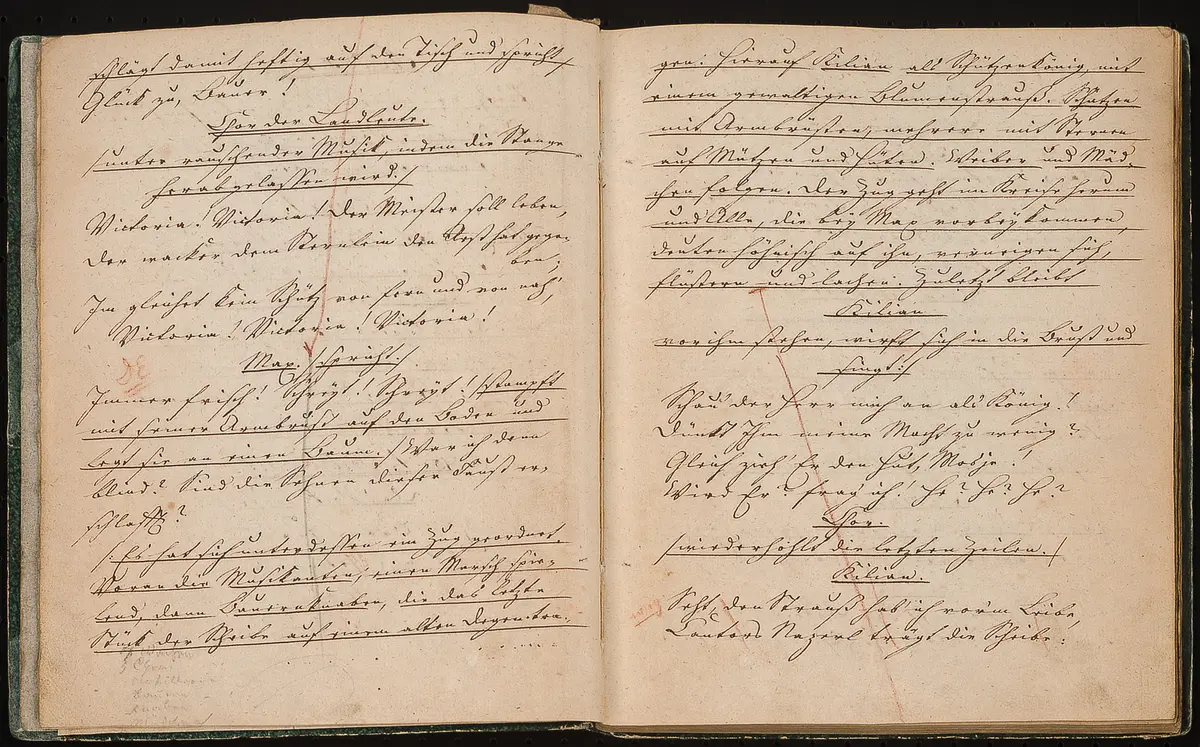 schlägt damit heftig auf den Tisch und spricht/
Glück zu, Bauer!
Chor der Landleute.
/unter rauschender Musik, indem die Stange
herabgelassen wird./
Victoria! Victoria! Der Meister soll leben,
Der wacker dem Sternlein den Rest hat gege-
ben;
Im gleichet kein Schütz von fern und von nah!
Victoria! Victoria! Victoria!
Max. /spricht./
Immer frisch! Schreyt! Schreyt! /stampft
mit seiner Armbrust auf den Boden und
legt sie an einen Baum./ War ich denn
blind? Sind die Sehnen dieser Faust er-
schlafft?
/: Es hat sich unterdessen ein Zug geordnet.
Voran die Musikanten, einen Marsch spie-
lend, dann Bauernknaben, die das letzte
Stück der Scheibe auf einem alten Degen tra-
gen: Hierauf Kilian als Schützenkönig, mit
einem gewaltigen Blumenstrauß. Schützen
mit Armbrüsten, mehrere mit Sternen
auf Mützen und Hüten. Weiber und Mäd-
chen folgen. Der Zug geht im Kreise herum
und Alle, die bey Max vorbey kommen,
deuten höhnisch auf ihn, verneigen sich,
flüstern und lachen. Zuletzt bleibt
Kilian
vor ihm stehen, wirft sich in die Brust und
singt:/
Schau der Herr mich an als König!
Dünkt Ihm meine Macht zu wenig?
Gleich zieh' Er den Hut, Mosje!
Wird Er? frag ich! He? He? He?
Chor.
/wiederhohlt die letzten Zeilen./
Kilian.
Seht, den Strauß hab' ich vorm Leibe,
Cantors Nazerl trägt die Scheibe: